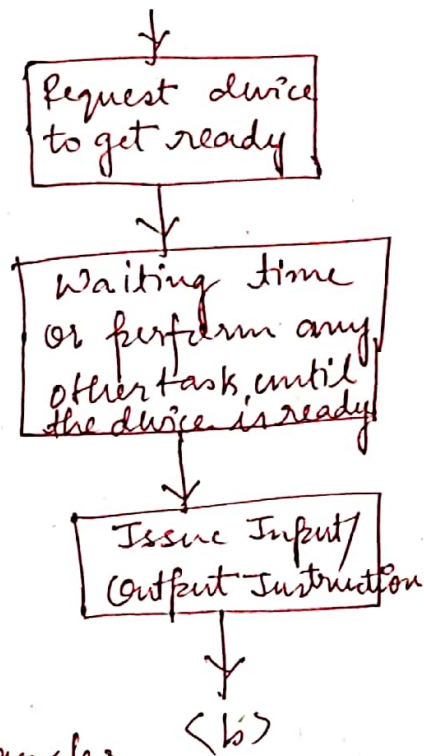 Request device
to get ready
Waiting time
or perform any
other task, until
the device is ready
Issue Input/
Output Instruction
<b>